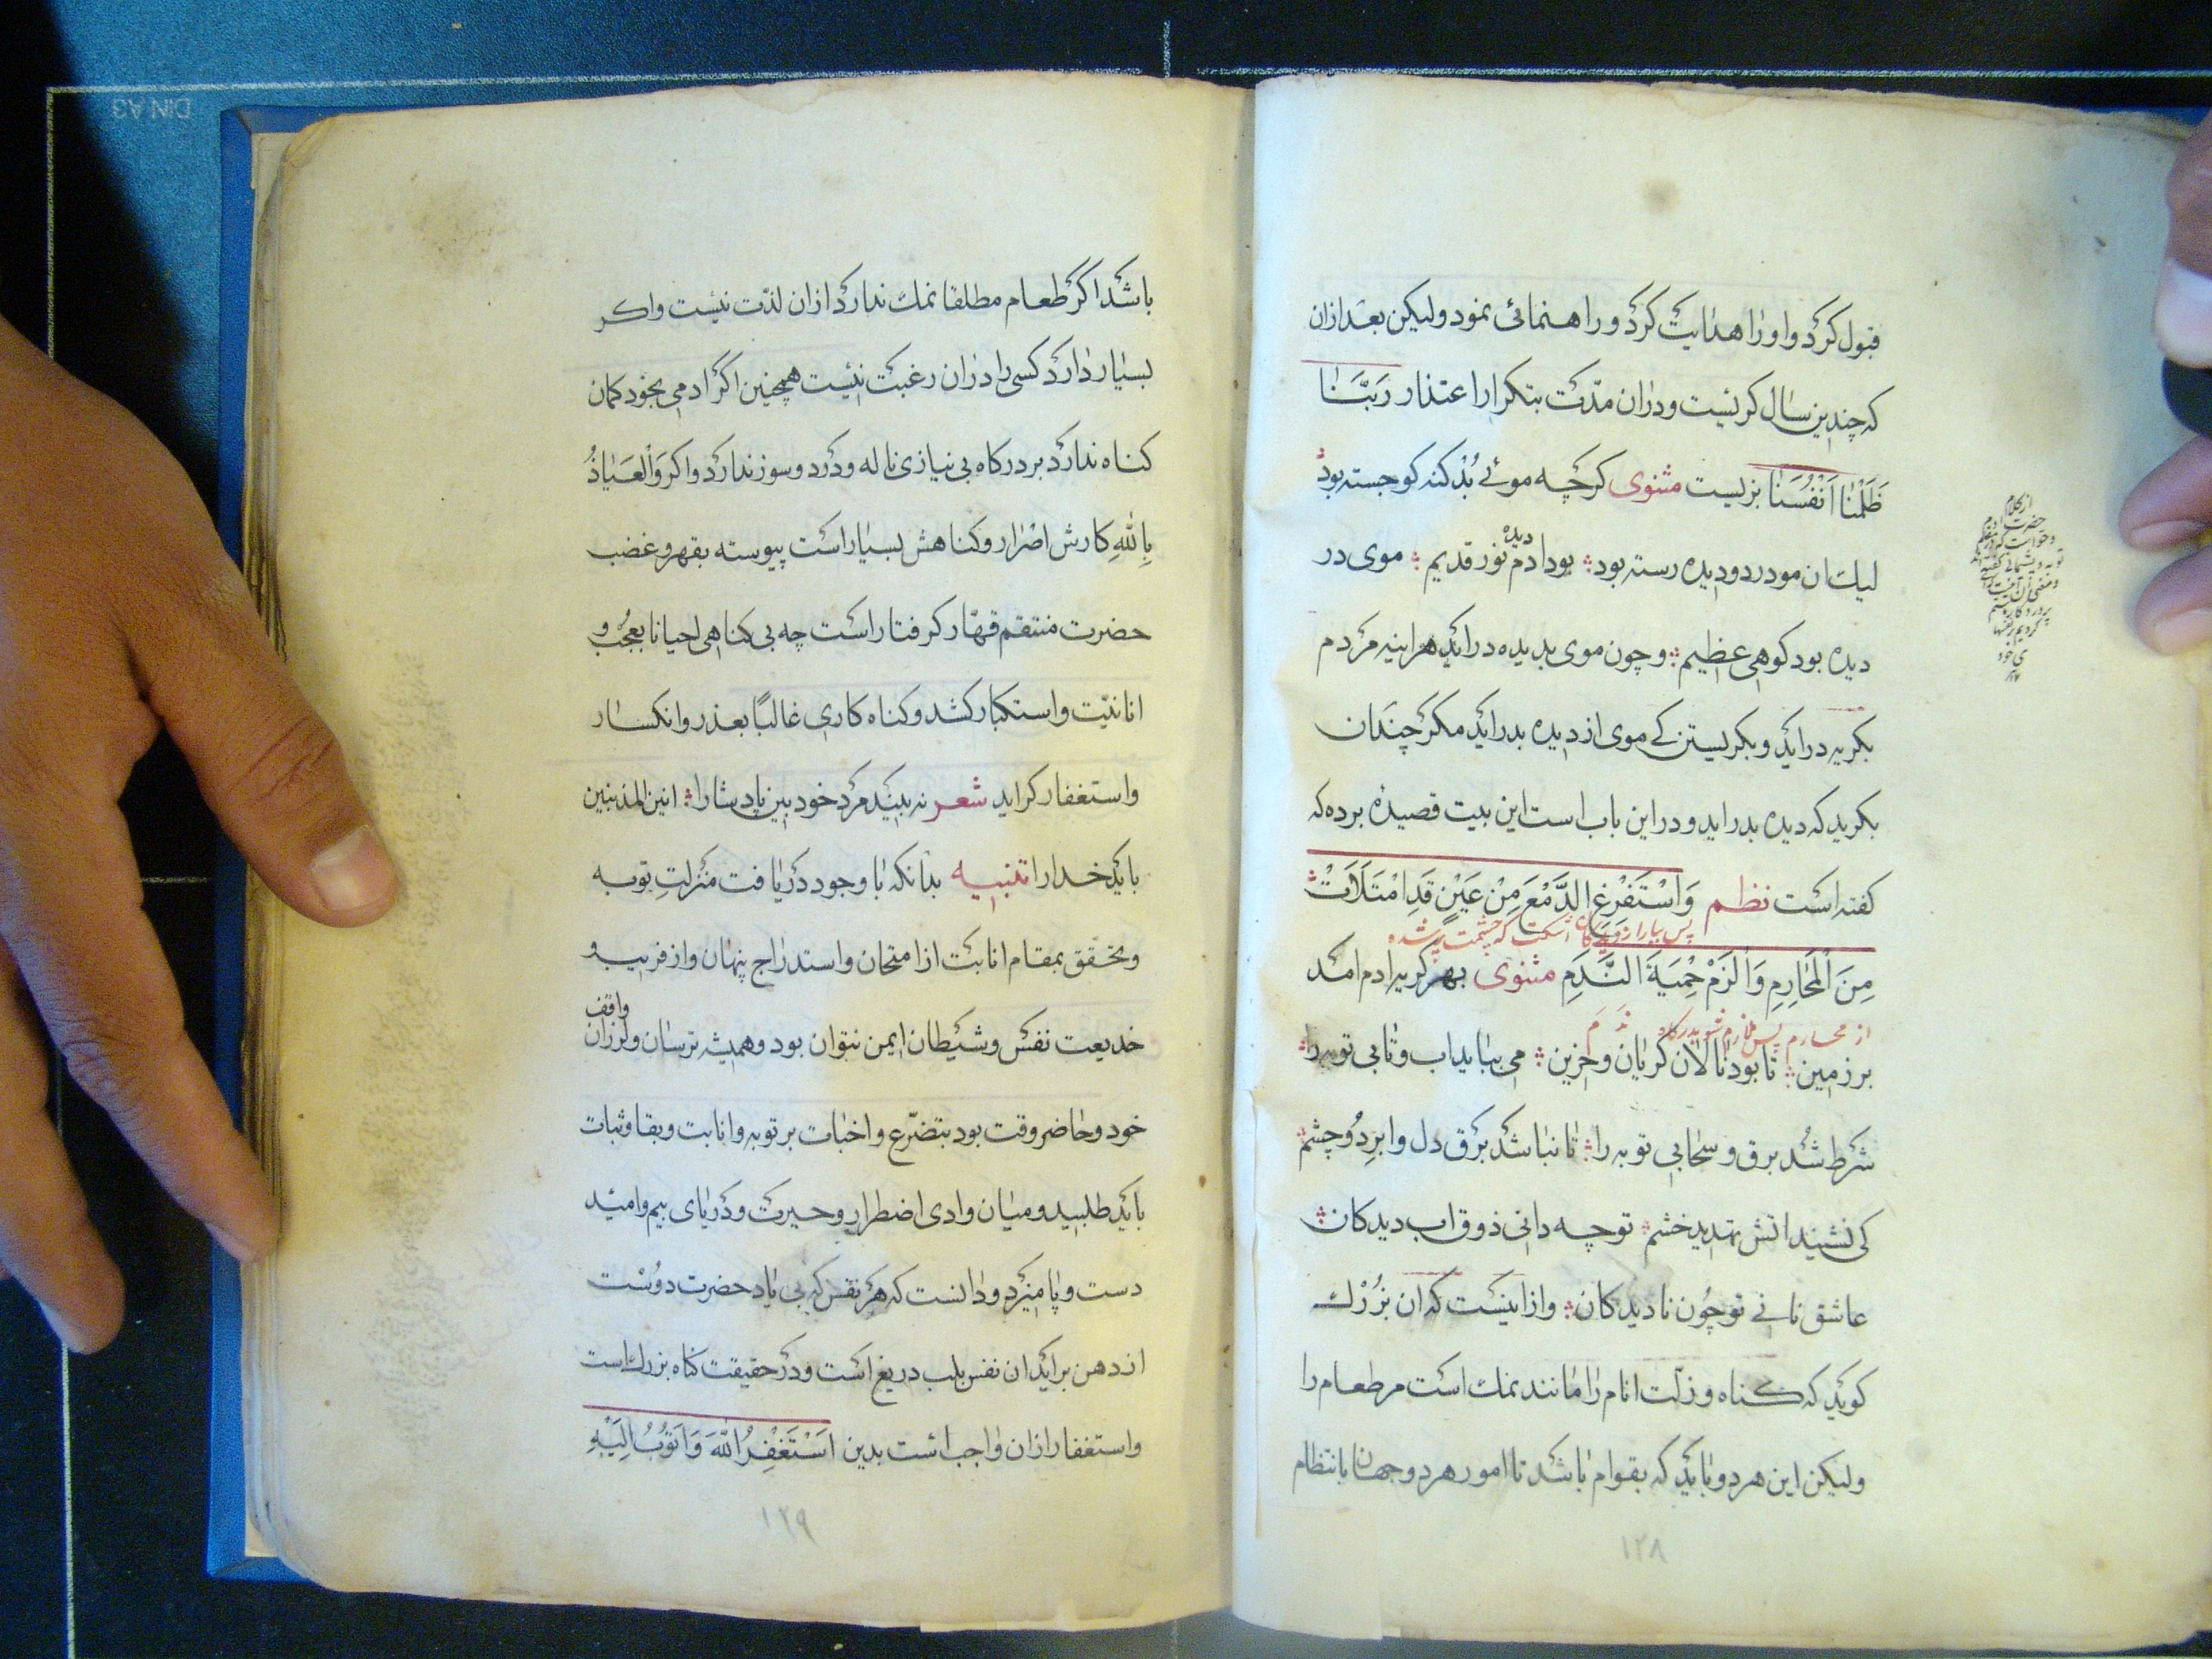 قبول کرد و او را هدایت کرد و راهنمائی نمود ولیکن بعد ازان
که چندین سال کریست و دران مدّت بتکرار اعتذار رَبَّنَا
ظَلَمْنَا اَنْفُسَنَا بزیست مثنوی کرچه موئے بُد کنه کو جسته بود
لیک ان مو در دو دیده رسته بود بود ادم دیده نور قدیم موی در
دیده بود کوهی عظیم و چون موی بدیده دراید هراینه مردم
بکریه دراید و بکریستن کے موی از دیده بدراید مکر چندان
بکرید که دیده بدراید و در این باب است این بیت قصیده برده که
کفته است نظم وَاسْتَفْرِغِ الدَّمْعَ مِنْ عَیْنٍ قَدِ امْتَلَاَتْ
مِنَ الْمَحَارِمِ وَالْزَمْ حِمْیَةَ النَّدَمِ مثنوی بهر کریه ادم امد
بر زمین تا بود نالان کریان و حزین می بباید اب و تابی توبه را
شرط شد برق و سحابی توبه را تا نباشد برق دل و ابر دو چشم
کی نشیند اتش تهدید خشم تو چه دانی ذوق اب دیدکان
عاشق نانے تو چون نادیدکان و ازاینست که ان بزرك
کوید که کناه و زلّت انام را مانند نمك است مر طعام را
ولیکن این هر دو باید که بقوام باشد تا امور هر دو جهان بانتظام
۱۲۸
از کلام
حضرت ادم
باشد اکر طعام مطلقا نمك ندارد ازان لذّت نیست واکر
بسیار دارد کسی را دران رغبت نیست همچنین اکر ادمی بخود کمان
کناه ندارد بر درکاه بی نیازی ناله و درد و سوز ندارد و اکر وَالْعَیَاذُ
بِاللّٰهِ کارش اضرار و کناهش بسیار است پیوسته بقهر و غضب
حضرت منتقم قهّار کرفتار است چه بی کناهی احیانا بعجُب و
انانیّت و استکبار کشد و کناه کاری غالبًا بعذر و انکسار
و استغفار کراید شعر نه بیند مرد خود بین پادشا را انین المذنبین
باید خدا را تنبیه بدانکه با وجود دریافت منزلت توبه
و تحقّق بمقام انابت از امتحان و استدراج پنهان و از فریب و
خدیعت نفس و شیطان ایمن نتوان بود و همیشه ترسان و لرزان واقف
خود و حاضر وقت بود بتضرّع و اخبات بر توبه و انابت و بقا و ثبات
باید طلبید و میان وادی اضطرار و حیرت و دریای بیم و امید
دست و پا میزد و دانست که هر نفس که بی یاد حضرت دوست
از دهن براید ان نفس بلب دریغ است و در حقیقت کناه بزرك است
و استغفار ازان واجب است بدین اَسْتَغْفِرُ اللّٰهَ وَاَتُوبُ اِلَیْهِ
۱۲۹